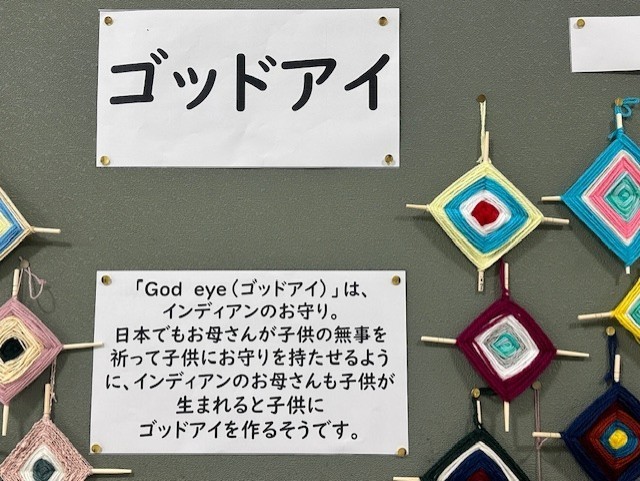 ゴッドアイ
「God eye(ゴッドアイ)」は、
インディアンのお守り。
日本でもお母さんが子供の無事を
祈って子供にお守りを持たせるよう
に、インディアンのお母さんも子供が
生まれると子供に
ゴッドアイを作るそうです。